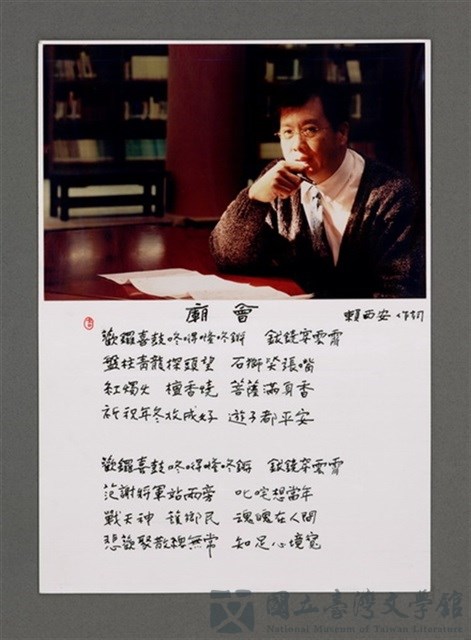 廟會
賴西安 作詞
歡鑼喜鼓咚得隆咚鏘 鈸鐃穿雲霄
盤柱青龍探頭望 石獅笑張嘴
紅燭火 檀香燒 菩薩滿身香
祈祝年冬收成好 遊子都平安
歡鑼喜鼓咚得隆咚鏘 鈸鐃穿雲霄
范謝將軍站兩旁 叱咤想當年
戰天神 護鄉民 魂魄在人間
悲歡聚散總無常 知足心境寬
國立臺灣文學館
National Museum of Taiwan Literature